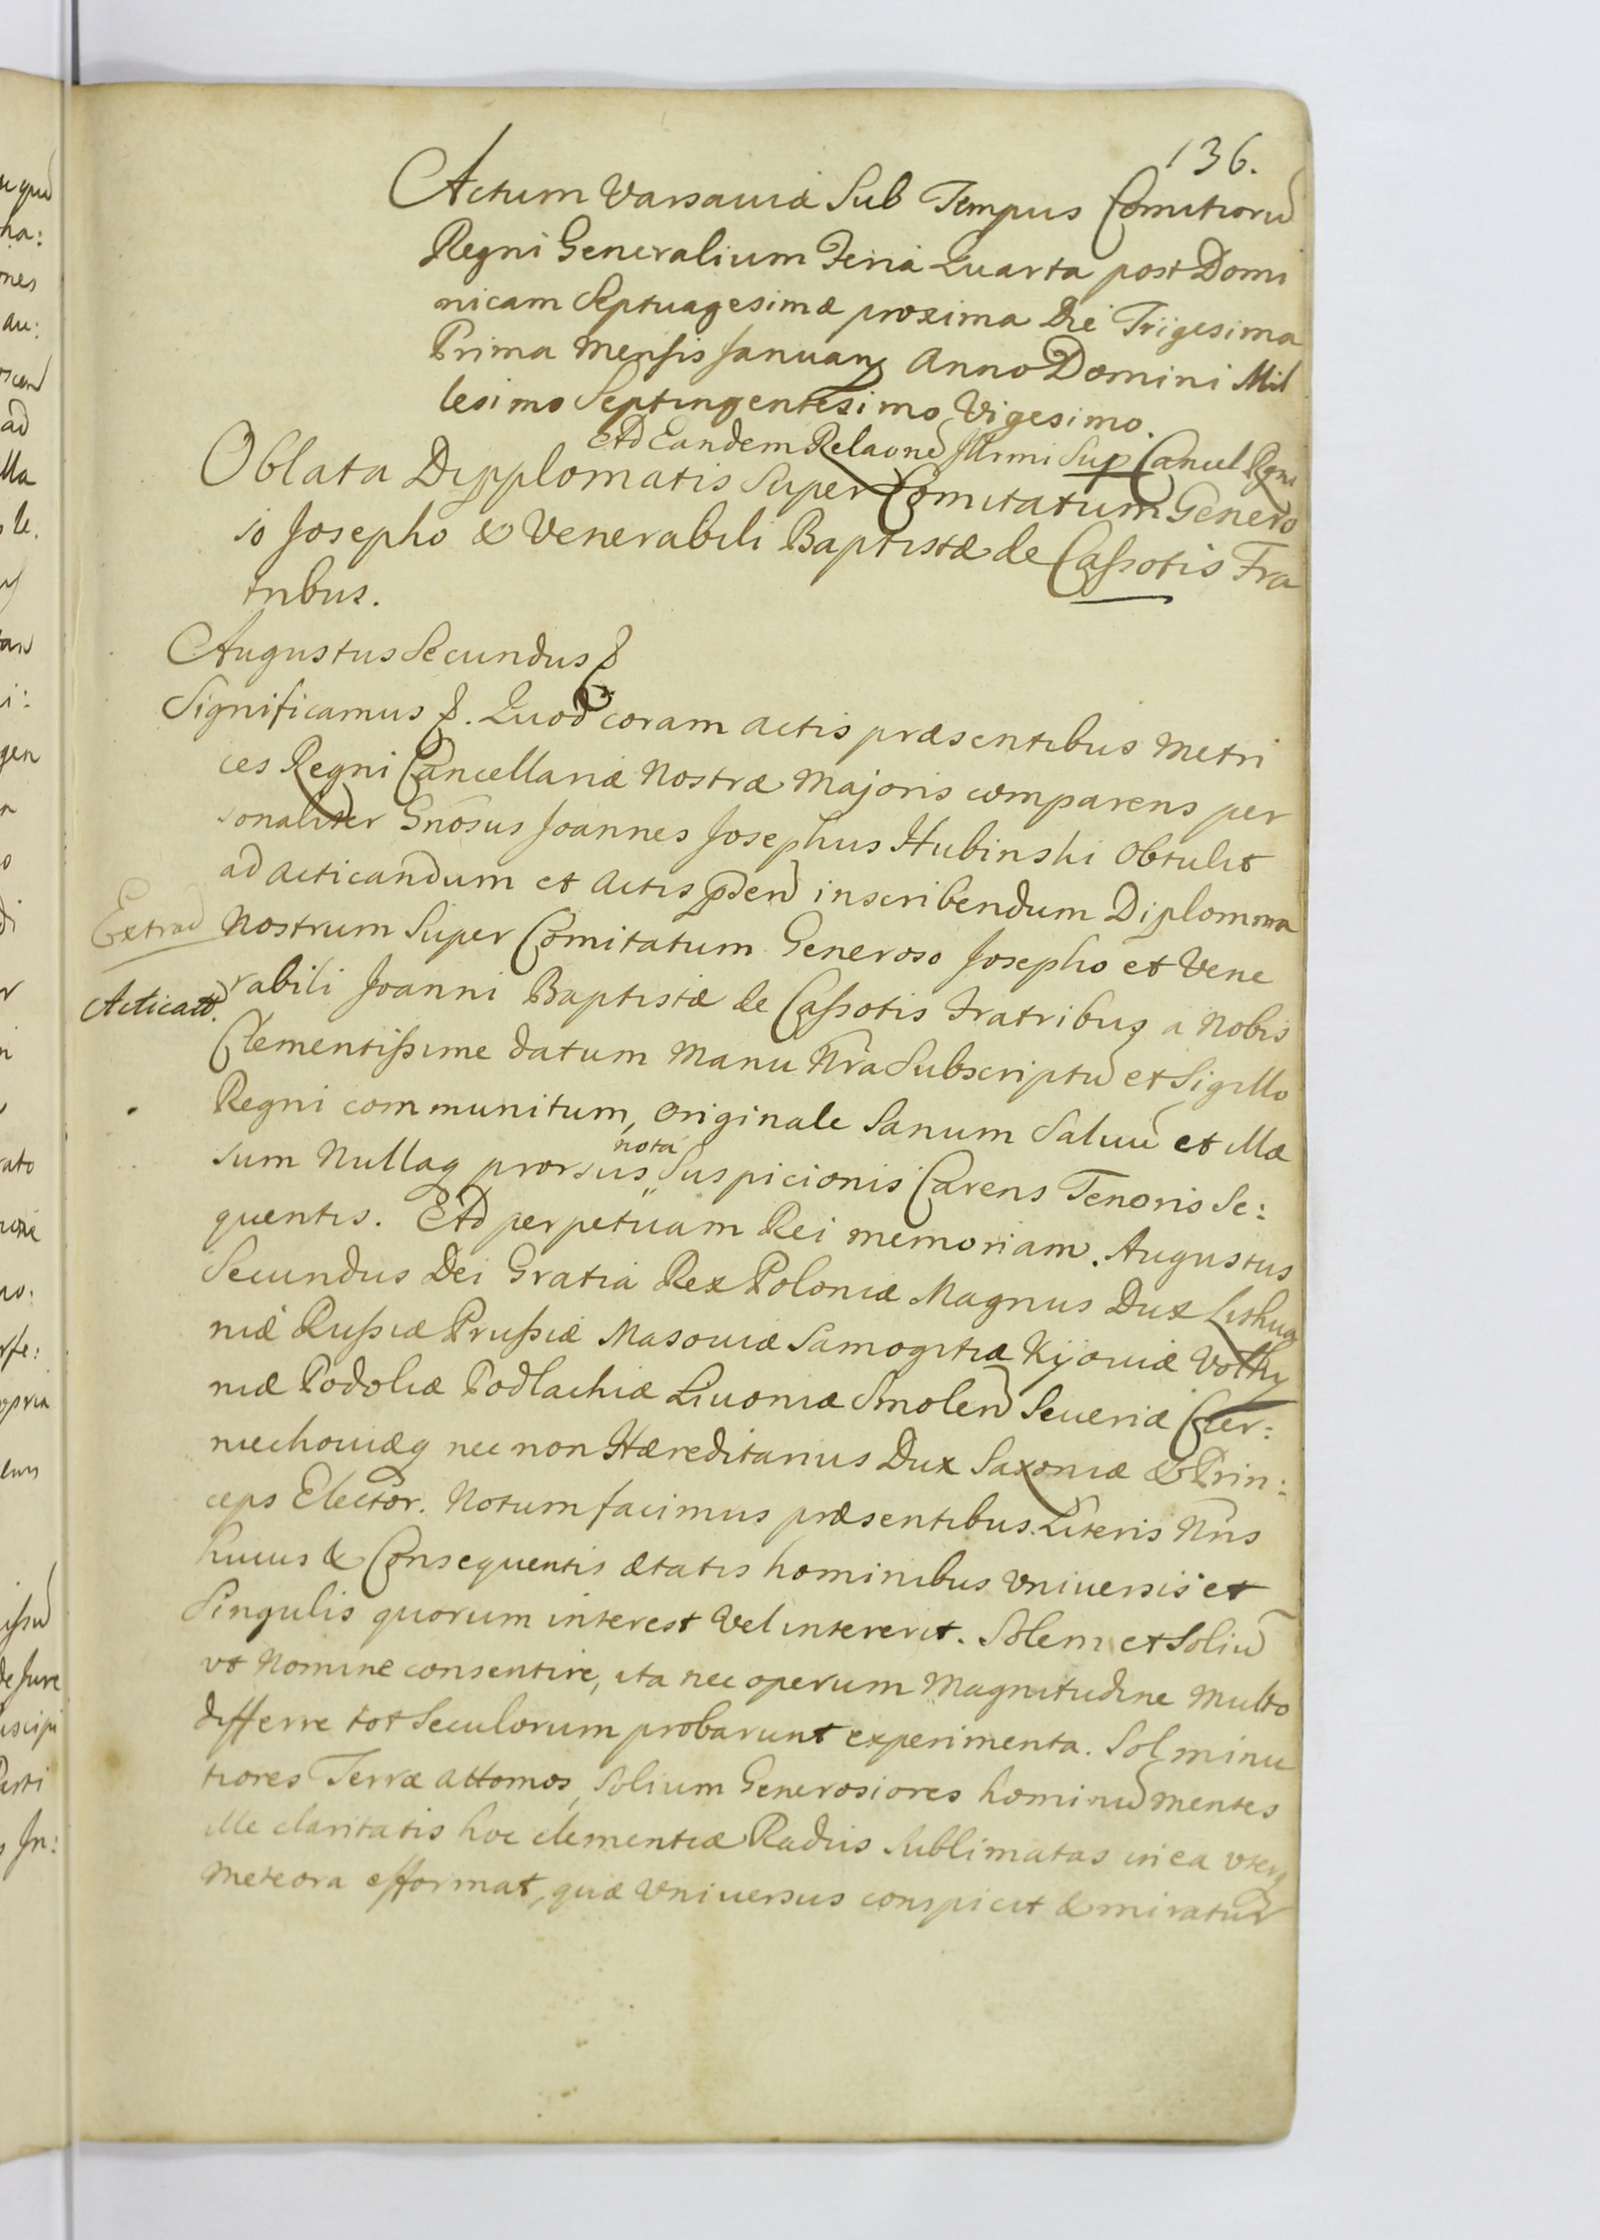 136.
Actum Varsauiæ Sub Tempus Comitiorũ
Regni Generalium Feria Quarta post Domi
nicam Septuagesimæ proxima Die Trigesima
Prima Mensis Januarij Anno Domini Mil
lesimo Septingentesimo Vigesimo.
Ad Eandem Relaonẽ Illrmi Sup Cancel Rgni
Oblata Dipplomatis Super Comitatum Genero
so Josepho & Venerabili Baptistæ de Cassotis Fra
tribus.
Augustus Secundus
Significamus. Quod coram actis præsentibus Metri
ces Regni Cancellariæ Nostræ Majoris comparens per
sonaliter Gnosus Joannes Josephus Hubinski obtulit
ad acticandum et actis pñden inscribendum Diplomma
Extrad Nostrum Super Comitatum Generoso Josepho et Vene
Acticatt. rabili Joanni Baptistæ de Cassotis Fratribus a Nobis
Clementissime datum Manu Nra Subscriptũ et Sigillo
Regni communitum, originale Sanum Saluũ et Illæ
sum Nullaq prorsus nota Suspicionis Carens Tenoris Se:
quentis. Ad perpetuam Rei memoriam. Augustus
Secundus Dei Gratia Rex Poloniæ Magnus Dux Lithua
niæ Russiæ Prussiæ Masouiæ Samogitiæ Kijouiæ Volhy
niæ Podoliæ Podlachiæ Liuoniæ Smolen Seueriæ Czer:
niechouiæq nec non Hæreditarius Dux Saxoniæ & Prin:
ceps Elector. Notum facimus præsentibus Literis Nris
huius & Consequentis ætatis hominibus vniuersis et
Singulis quorum interest Vel intererit. Solem et Soliũ
vt Nomine consentire, ita nec operum Magnitudine Multo
differre tot Seculorum probarunt experimenta. Sol minu
tiores Terræ attomos, Solium Generosiores hominũ mentes
ille claritatis hoc clementiæ Radiis Sublimatas in ea vterq
Meteora efformat, quæ Vniuersus conspicit & miratur